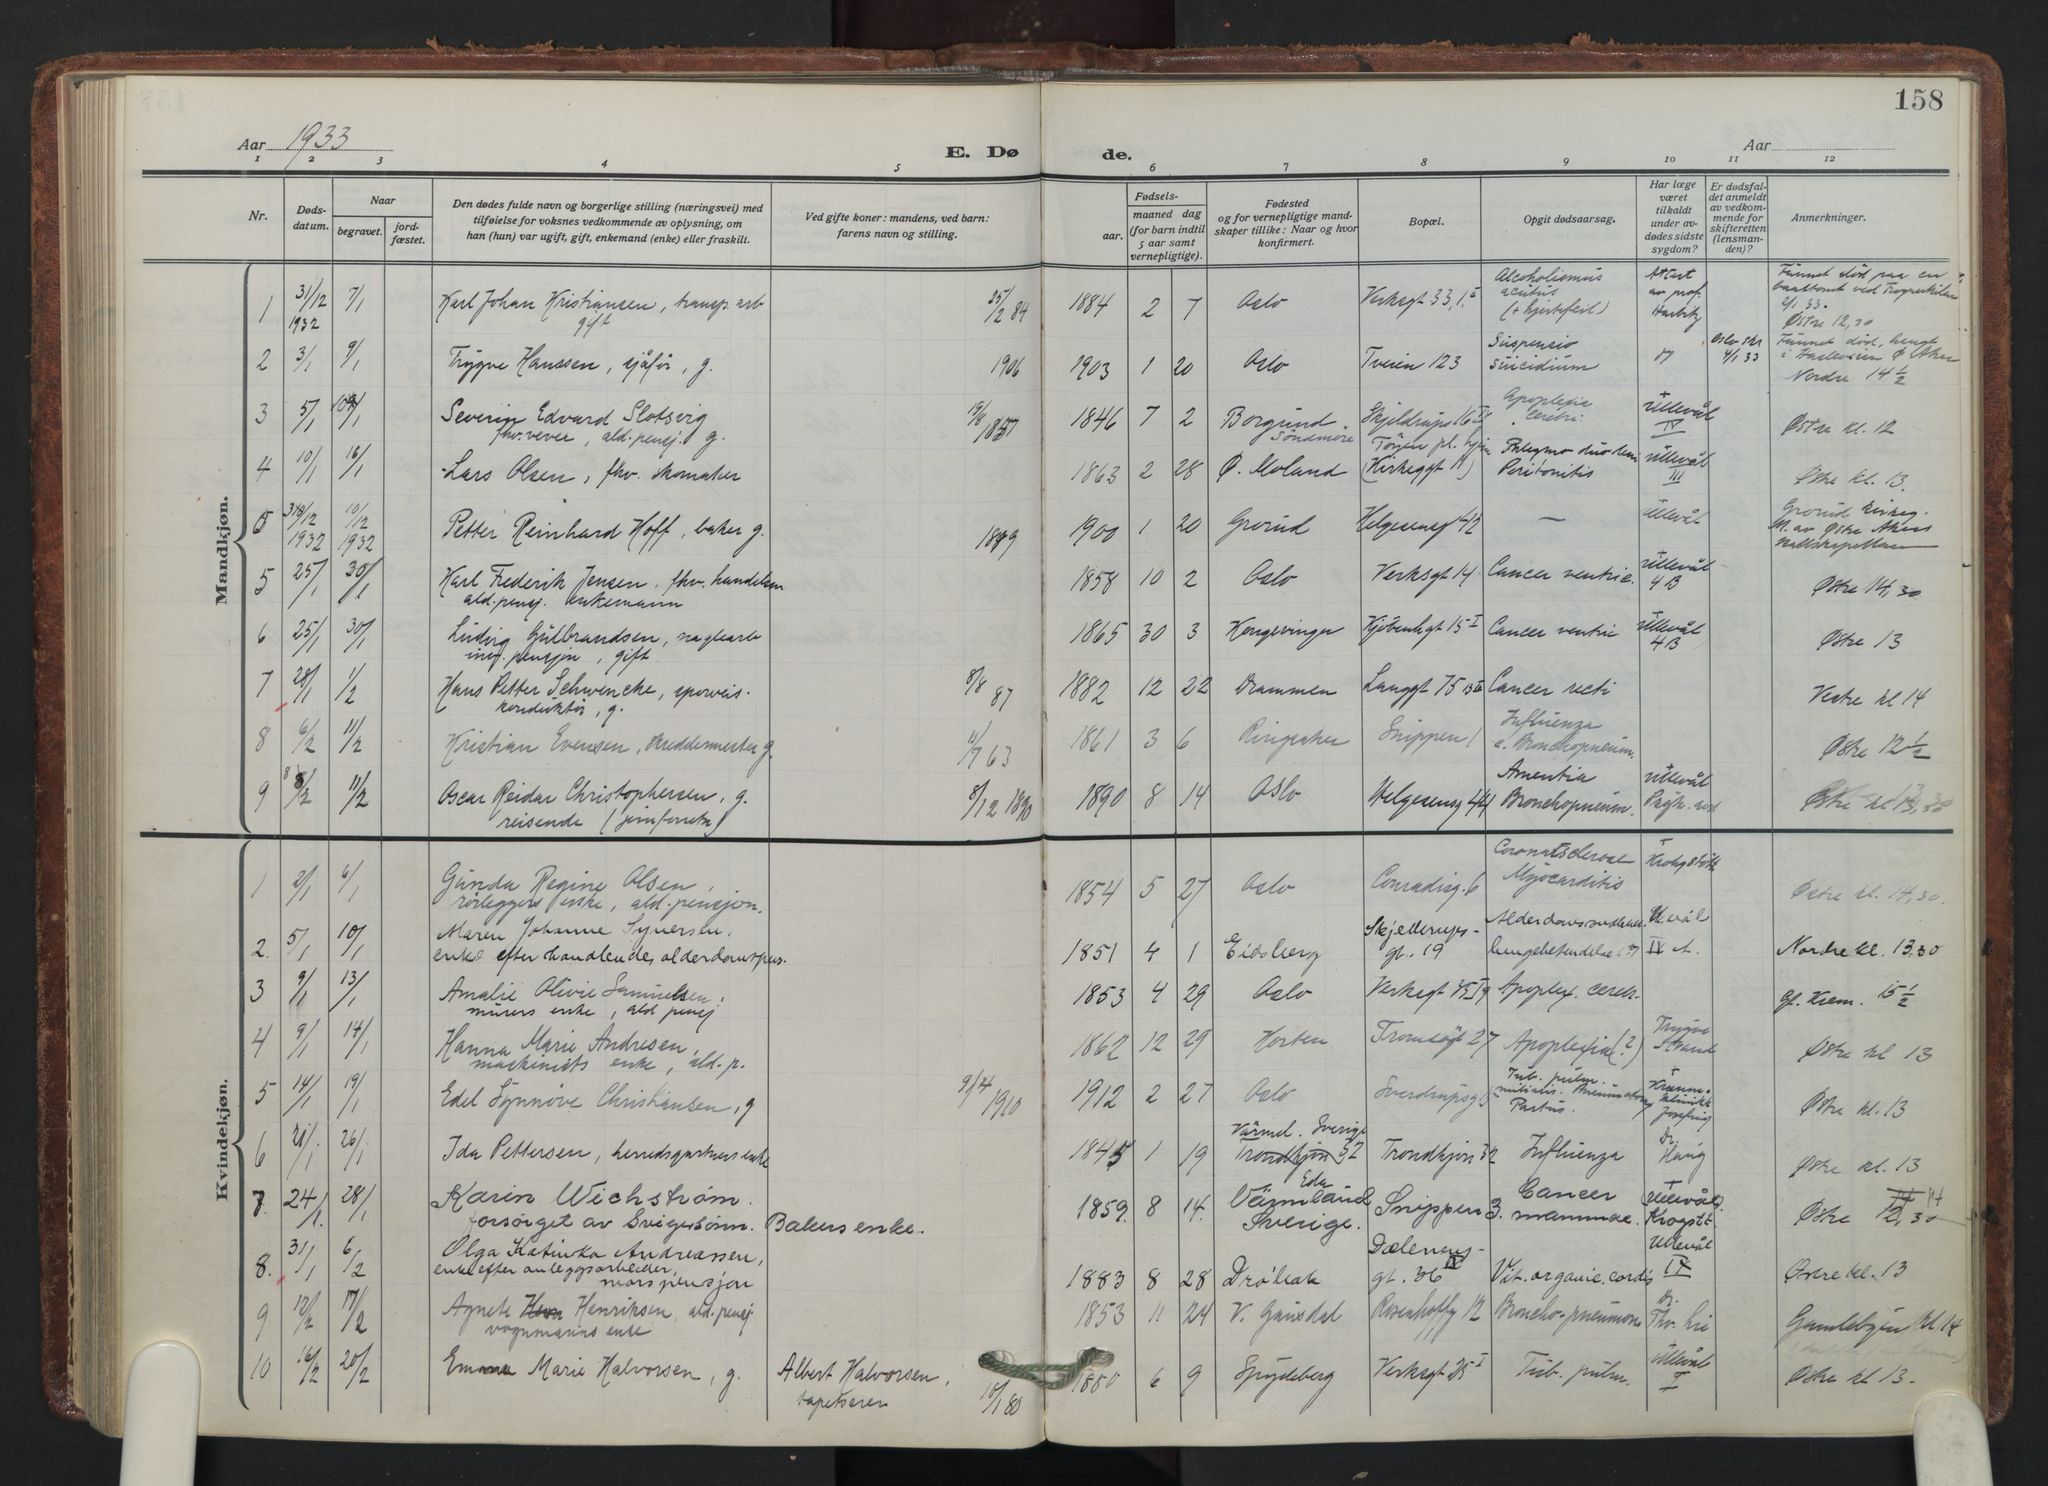 158
Aar 1933
E. Dø de.
Aar
1 2 3 4 5 6 7 8 9 10 11 12
Nr.
Døds-
datum.
Naar
begravet.
jord-
fæstet.
Den dødes fulde navn og borgerlige stilling (næringsvei) med
tilføielse for voksnes vedkommende av oplysning, om
han (hun) var ugift, gift, enkemand (enke) eller fraskilt.
Ved gifte koner: mandens, ved barn:
farens navn og stilling.
Fødsels-
aar.
maaned dag
(for barn indtil
5 aar samt
vernepligtige).
Fødested
og for vernepligtige mand-
skaper tillike: Naar og hvor
konfirmert.
Bopæl.
Opgit dødsaarsag.
Har læge
været
tilkaldt
under av-
dødes sidste
sygdom?
Er dødsfal-
det anmeldt
av vedkom-
mende for
skifteretten
(lensman-
den)?
Anmerkninger.
Mandkjøn.
1 31/12 1932 7/1 Karl Johan Kristiansen, transp. arb gift 25/2 84 1884 2 7 Oslo Verksgt 33, 1. Alcoholismus acutus (+ hjertefeil) Attest av prof. Harbitz Funnet død paa en 2/1 33. Østre 12,30
2 3/1 9/1 Trygve Hanssen, sjåfør, g. 1906 1903 1 20 Oslo Tveien 123 Suspensio suicidium Oslo skr 4/1 33 Funnet død, hengt i Nordre 14 1/2
3 5/1 Severin Edvard Slotsvig fhv. vever, ald. pensj. g. 1846 7 2 Borgund Søndmøre Apoplexia cerebri. Ullevål IV Østre kl. 12
4 10/1 16/1 Lars Olsen, fhv. skomaker 1863 2 28 Ø. Moland (Kirkegt 11) Peritonitis Ullevål III Østre kl. 13.
0 1932 10/12 1932 Petter Reinhard Hoff, baker g. 1900 1 20 Grorud Helgesensgt 42 — Ullevål Grorud kirkeg. M. av Østre Akers
5 25/1 30/1 Karl Frederik Jensen, fhv. handelsm ald. pensj. enkemann 1858 10 2 Oslo Verksgt 14 Cancer ventric. Ullevål 4 B Østre 14,30
6 25/1 30/1 Ludvig Gulbrandsen, naglearb ing. pensjon, gift. 1865 30 3 Kongsvinger Kjøbenhgt 15 I Cancer ventric Ullevål 4 B Østre 13
7 28/1 1/2 Hans Petter Schwencke, sporveis. konduktør, g. 8/8 87 1882 12 22 Drammen Langgt 75 Cancer recti Vestre kl 14
8 6/2 11/2 Kristian Evensen, skreddermester g. 11/7 63 1861 3 6 Ringsaker Snippen 1 Influenza c. Bronchopneum. Østre 12 1/2
9 8/2 11/2 Oscar Reidar Christophersen, g. reisende (jernforretn) 8/12 1890 1890 8 14 Oslo Helgesensg 44 Amentia Bronchopneum. Ullevål Østre kl 13,30
Kvindekjøn.
1 2/1 6/1 Gunda Regine Olsen, rørleggers enke, ald. pensjon. 1854 5 27 Oslo Conradisg. 6 Myocarditis Østre kl. 14,30.
2. 5/1 10/1 Maren Johanne Syversen, enke efter handlende, alderdomspens. 1851 4 1 Eidsberg Skjellerups- gt. 19 lungebetendelse (?) Ul.vål IX Nordre kl. 13,30
3 9/1 13/1 Amalie Olivie Samuelsen, murers enke, ald pensj 1853 4 29 Oslo Verksgt Apoplex. cerebr. Gl. Krem. 15 1/2
4 9/1 14/1 Hanna Marie Andresen, maskinists enke, ald. p. 1862 12 29 Horten Tromsøgt 27 Apoplexia (?) Trygve Strand Østre kl 13
5 14/1 19/1 Edel Synnøve Christiansen, g 9/4 1910 1912 2 27 Oslo Sverdrupsg Tub. pulm. miliaris. Partus. Østre kl. 13
6 21/1 26/1 Ida Pettersen, herredsgartners enke 1845 1 19 Värml. Sverige Trondhjem 32 Trondhjem 32 Influenza Dr. Haug Østre kl. 13
7. 24/1. 28/1 Karin Wichstrøm. forsørget av Svigersønn. Bakers enke. 1859. 8 14. Eda Värmland Sverige. Snippen 3. Cancer mammae. (Ullevål) Krogstt. Østre 12,30
8. 31/1 6/2 Olga Katinka Andreassen, enke efter anleggsarbeider, morspensjon 1883 8 28 Drøbak Dælenens- gt. 36 Vit. organic. cordis Ullevål IX Østre kl. 13
9 12/2 17/2 Agnete Henriksen, ald. pensj vognmanns enke 1853 11 24 V. Gausdal Rosenhoffg 12 Broncho-pneumoni dr. Thv. Gamlebyen kl 14
10 16/2 20/2 Emma Marie Halvorsen, g. Albert Halvorsen, tapetserer 10/1 80 1880 6 9 Spydeberg Verksgt 25 I Tub. pulm. Ullevål I Østre kl 13.